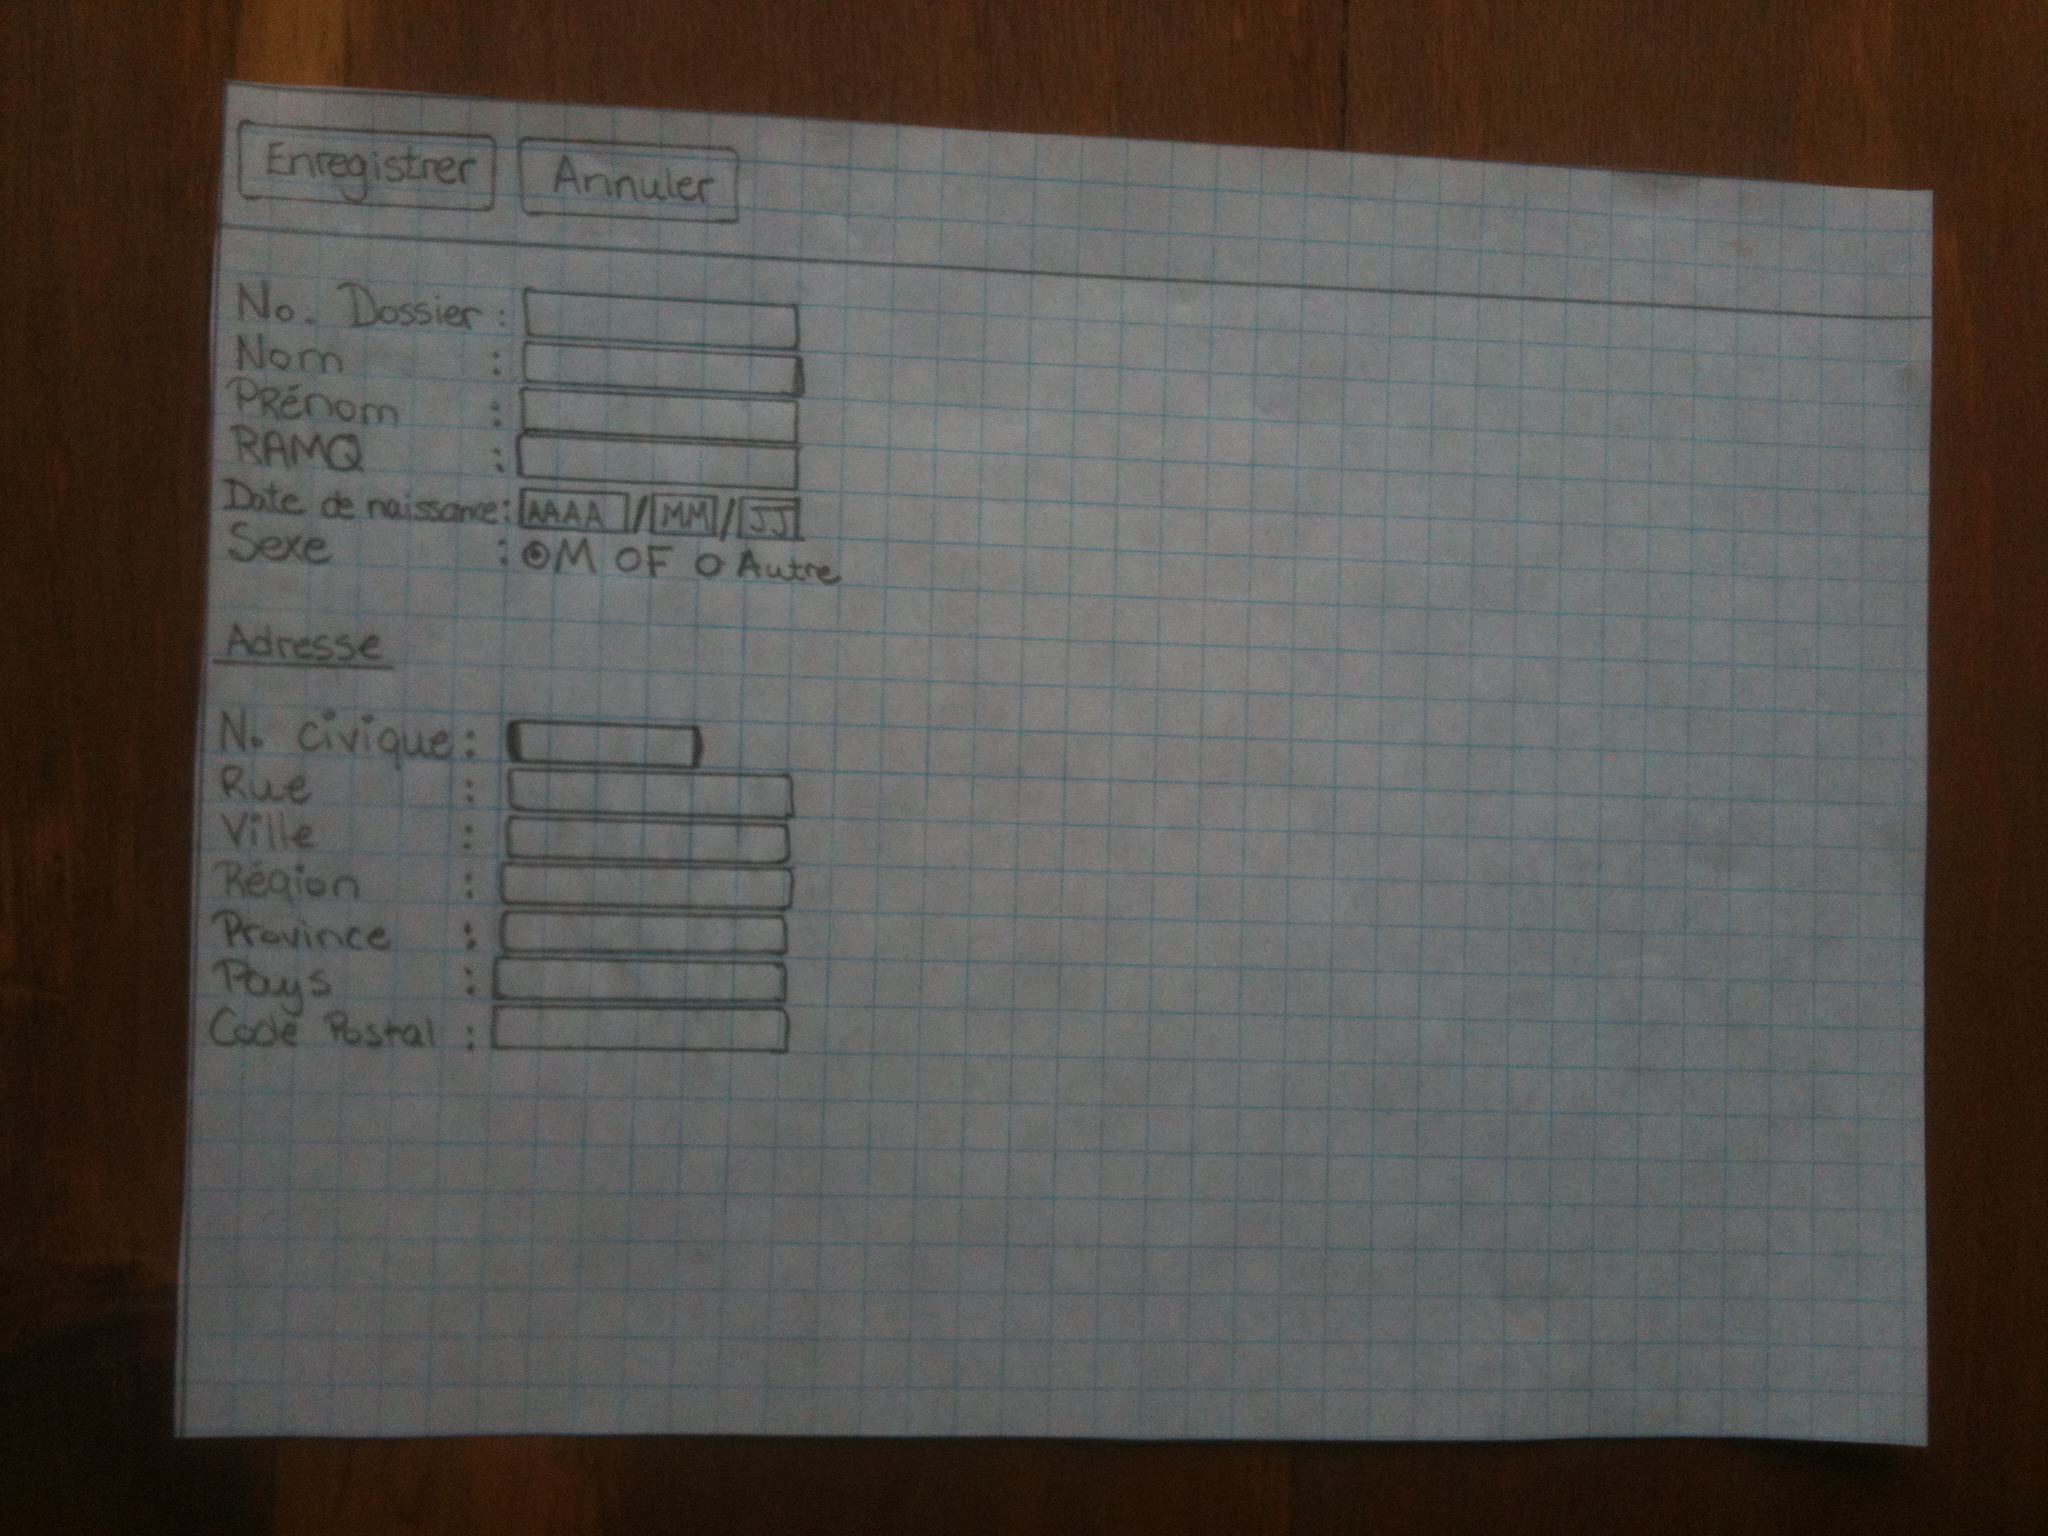 Enregistrer Annuler
No. Dossier :
Nom :
Prénom :
RAMQ :
Date de naissance : AAAA / MM / JJ
Sexe : M F Autre
Adresse
N. civique :
Rue :
Ville :
Région :
Province :
Pays :
Code Postal :